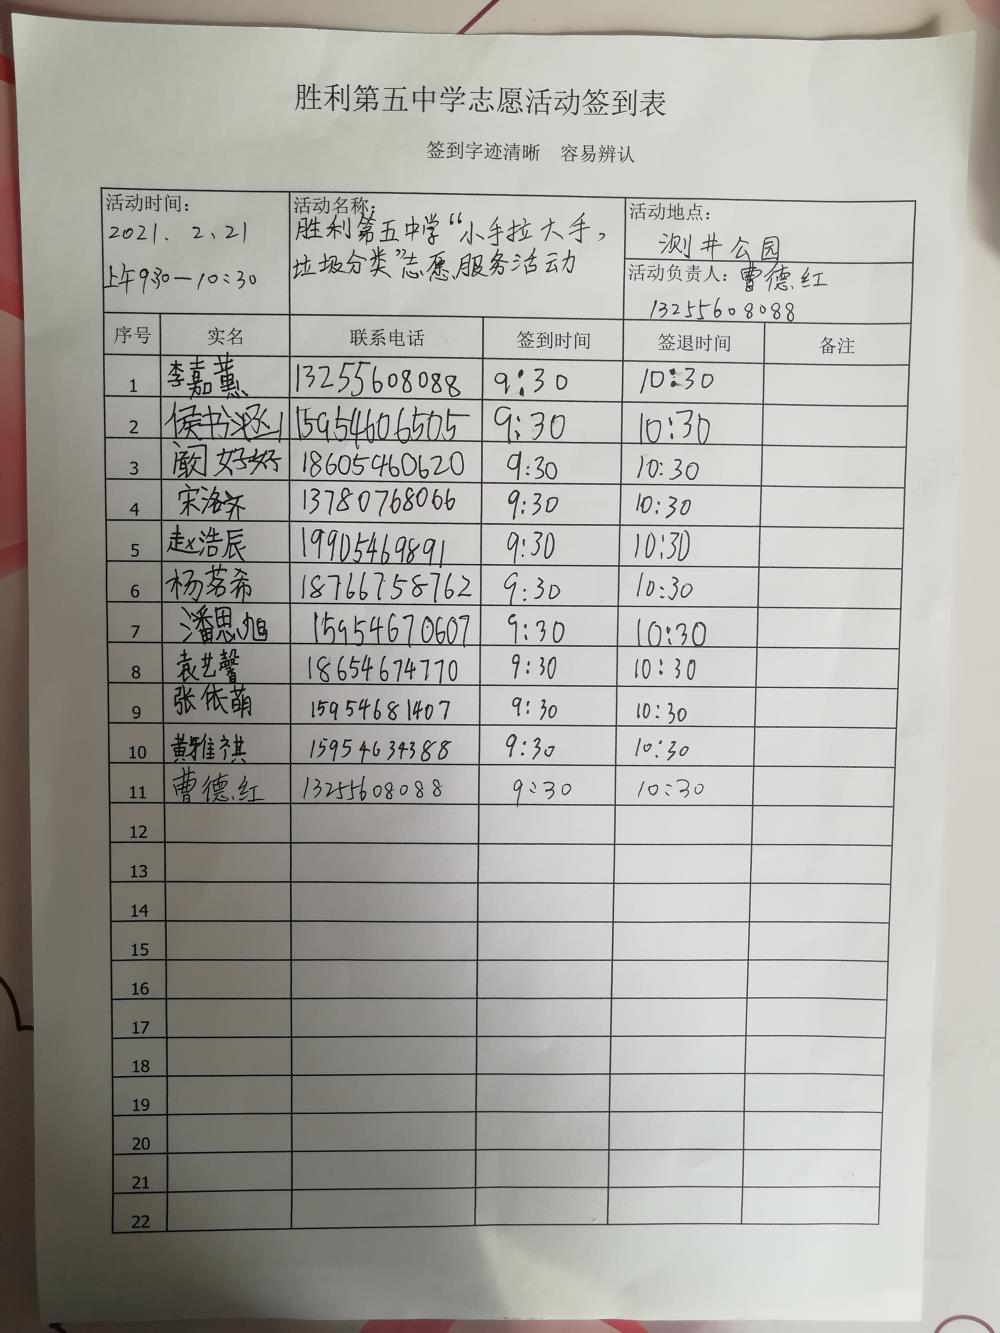 胜利第五中学志愿活动签到表
签到字迹清晰 容易辨认
活动时间: 活动名称: 活动地点:
2021. 2、21 胜利第五中学“小手拉大手, 测井公园
上午9:30—10:30 垃圾分类”志愿服务活动 活动负责人: 曹德红
13255608088
序号 实名 联系电话 签到时间 签退时间 备注
1 李嘉薰 13255608088 9:30 10:30
2 侯书 15954606505 9:30 10:30
3 阚好好 18605460620 9:30 10:30
4 宋洺齐 13780768066 9:30 10:30
5 赵浩辰 19905469891 9:30 10:30
6 杨茗希 18766758762 9:30 10:30
7 潘思旭 15954670607 9:30 10:30
8 袁艺馨 18654674770 9:30 10:30
9 张依萌 15954681407 9:30 10:30
10 黄雅祺 15954634388 9:30 10:30
11 曹德红 13255608088 9:30 10:30
12
13
14
15
16
17
18
19
20
21
22